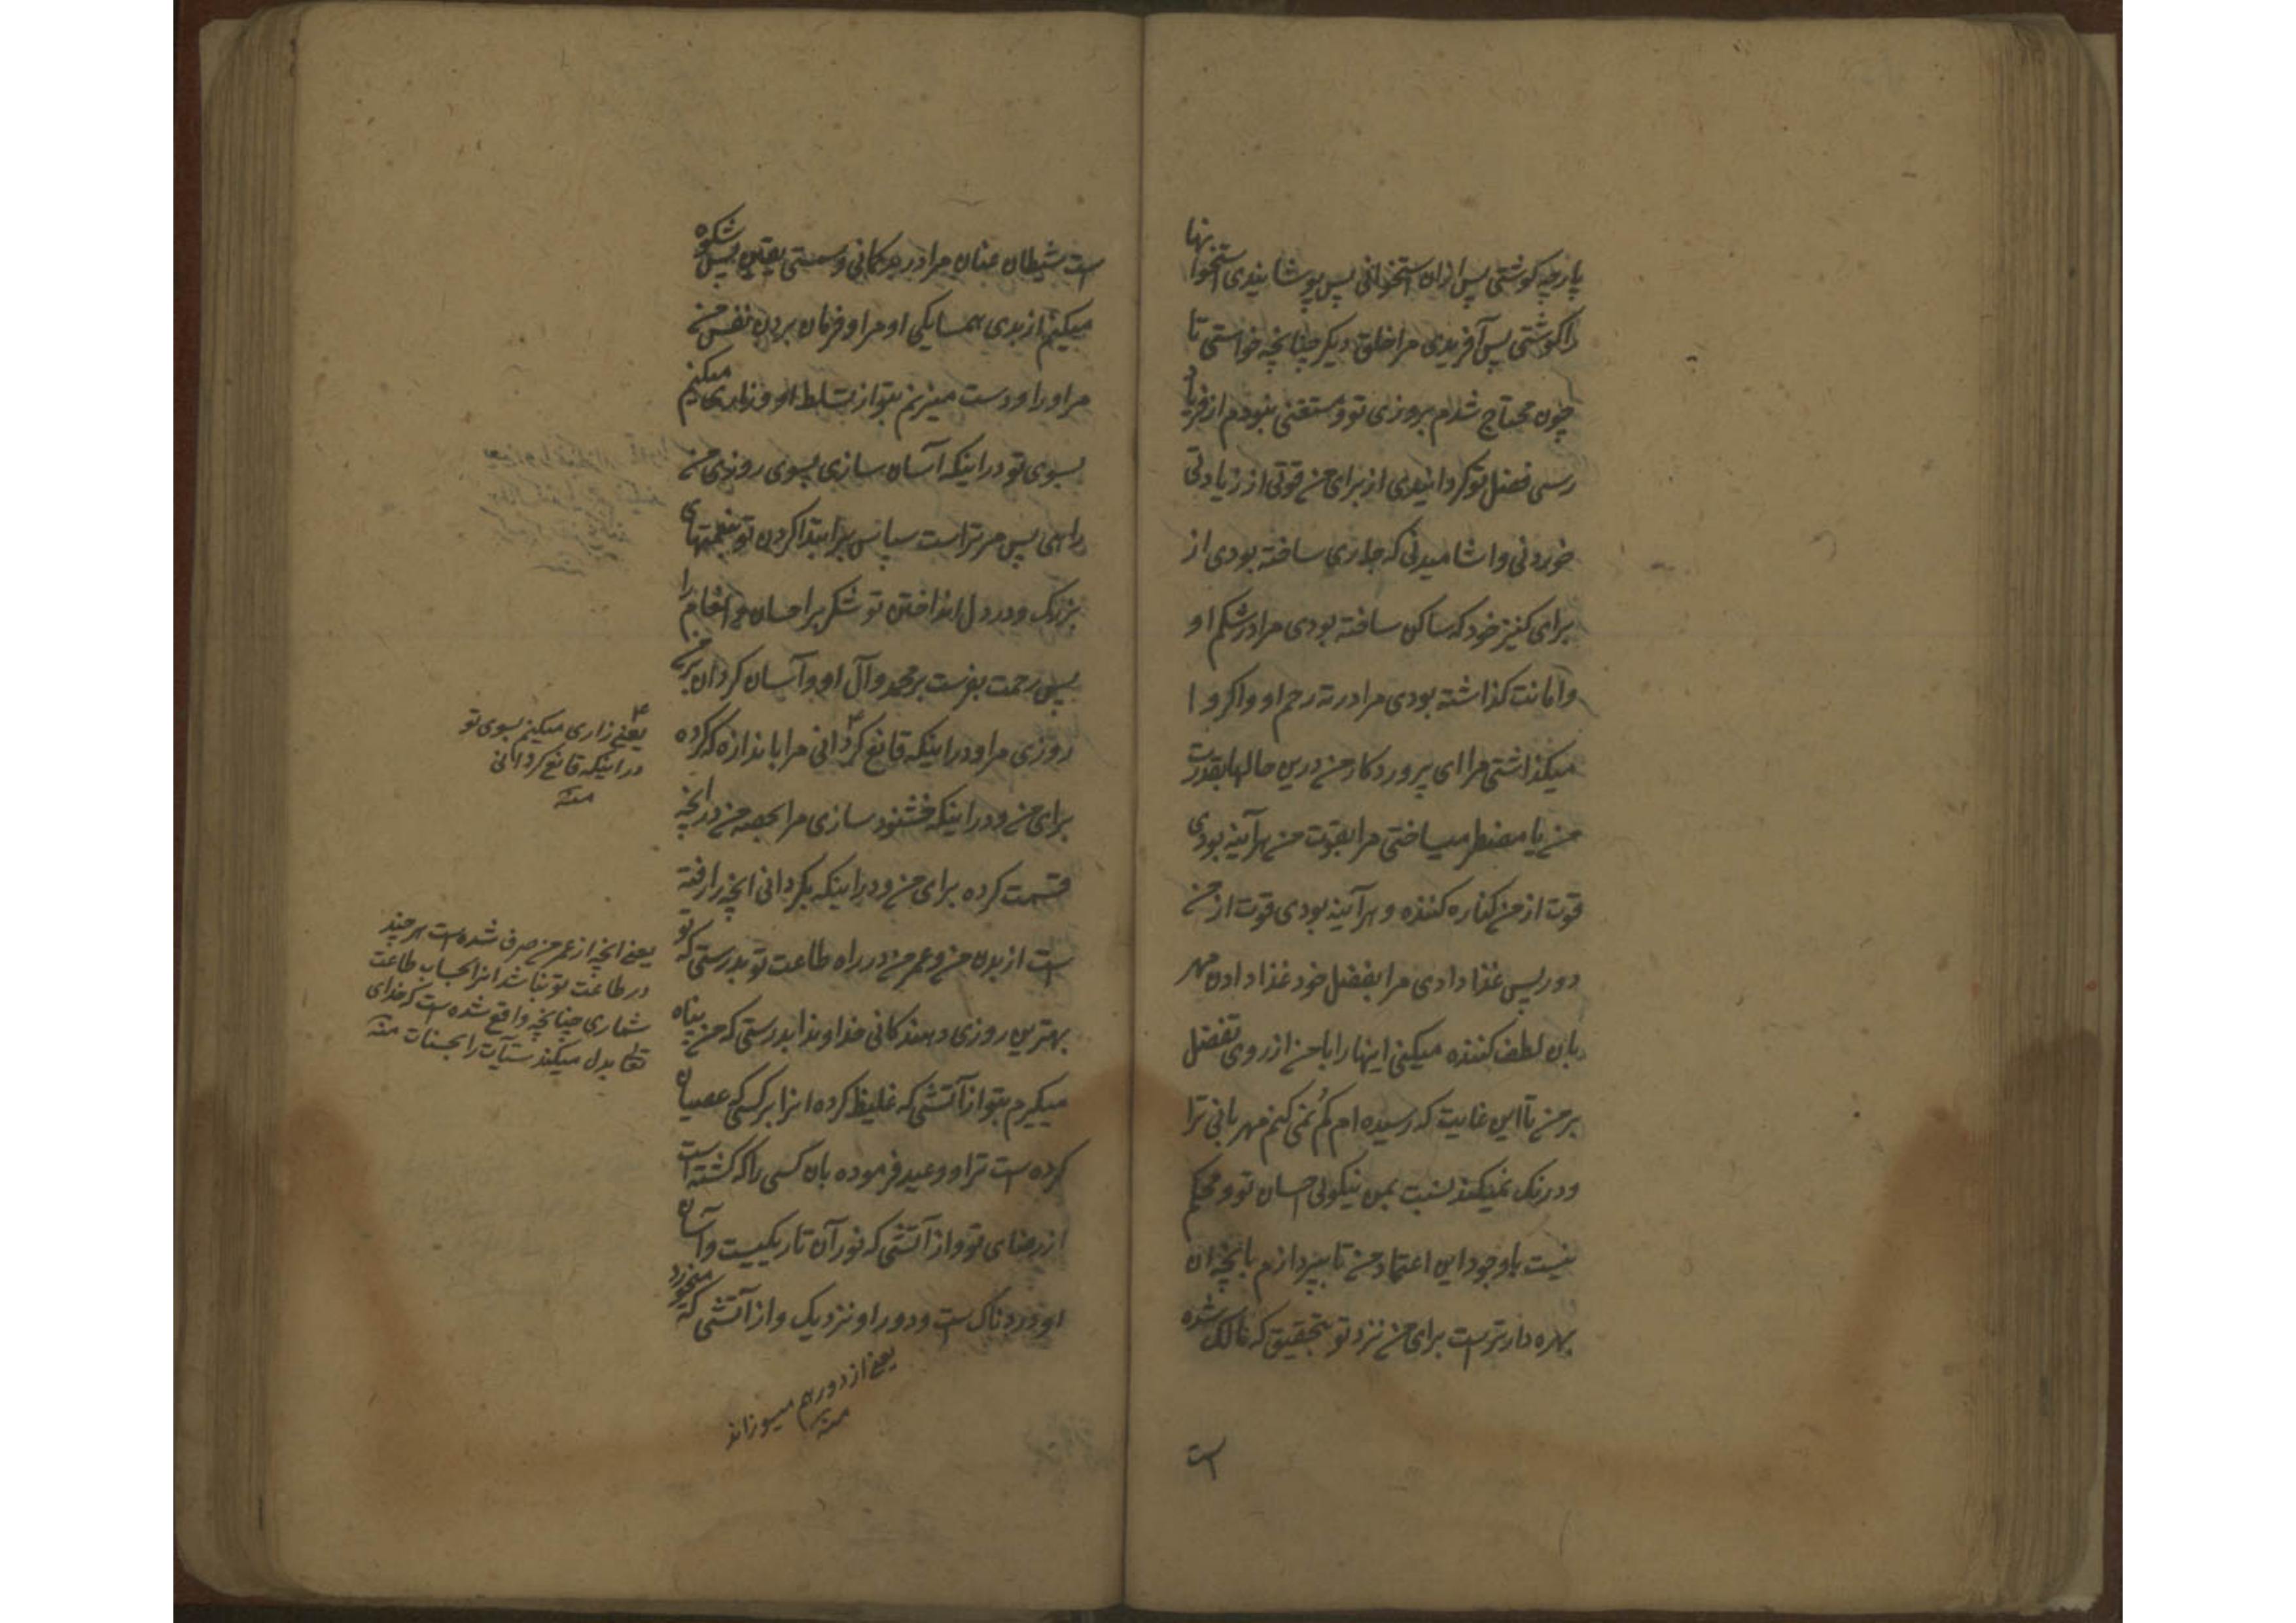 پارچه کوشتی پس ازان استخوانی پس پوشانیدی استخوانها
را کوشتی پس آفریدی مرا خلق دیکر چنانچه خواستی تا
چون محتاج شدم بروزی تو و مستغنی نبودم از فریاد
رسی فضل تو کردانیدی از برای من قوتی از زیادتی
خوردنی و اشامیدنی که جاری ساخته بودی از
برای کنیز خود که ساکن ساخته بودی مرا در شکم او
و امانت کذاشته بودی مرا در ته رحم او و اکر وا
میکذاشتی مرا ای پروردکار من درین حالها بقدرت
من یا مضطر میساختی مرا بقوت من هرآینه بودی
قوت از من کناره کننده و هرآینه بودی قوت از من
دور پس غذا دادی مرا بفضل خود غذا دادن مهر
بان لطف کننده میکنی اینها را با من از روی تفضل
بر من تا این غایت که رسیده ام کُم نمی کنم مهربانی ترا
و درنک نمیکند نسبت بمن نیکوئی احسان تو و محکم
نیست باوجود این اعتماد من تا بپردازم بانچه ان
بهره دارتر است برای من نزد تو بتحقیق که مالک شده
است
است شیطان عنان مرا در بدکمانی و سستی یقین پس شکوه
میکنم از بدی همسایکی او مرا و فرمان بردن نفس من
مر او را و دست میزنم بتو از تسلط او و زاری میکنم
بسوی تو در اینکه آسان سازی بسوی روزی من
راهی پس مر تراست سپاس برابتدا کردن تو بنعمتهای
بزرک و در دل انداختن تو شکر بر احسان و انعام را
پس رحمت بفرست بر محمد و آل او و آسان کردان بر من
روزی مرا و در اینکه قانع کردانی مرا باندازه که کرده
برای من و در اینکه خشنود سازی مرا بحصه من در انچه
قسمت کرده برای من و در اینکه بکردانی انچه را رفته
است از بدن من و عمر من در راه طاعت تو بدرستی که تو
بهترین روزی دهندکانی خداوندا بدرستی که من پناه
میکیرم بتو از آتشی که غلیظ کرده انرا بر کسی که عصیان
کرده است ترا و وعید فرموده بان کسی را که کشته است
از رضای تو و از آتشی که نور آن تاریکییست و آسان
او دردناک است و دور او نزدیک و از آتشی که میخورد
یعنی زاری میکنم بسوی تو
در اینکه قانع کردانی
منه
یعنی انچه از عمر من صرف شده است هر چند
در طاعت تو نباشد انرا بحساب طاعت
شماری چنانچه واقع شده است که خدای
تعا بدل میکند سیآت را بحسنات منه
یعنی از دور هم میسوزاند
منه